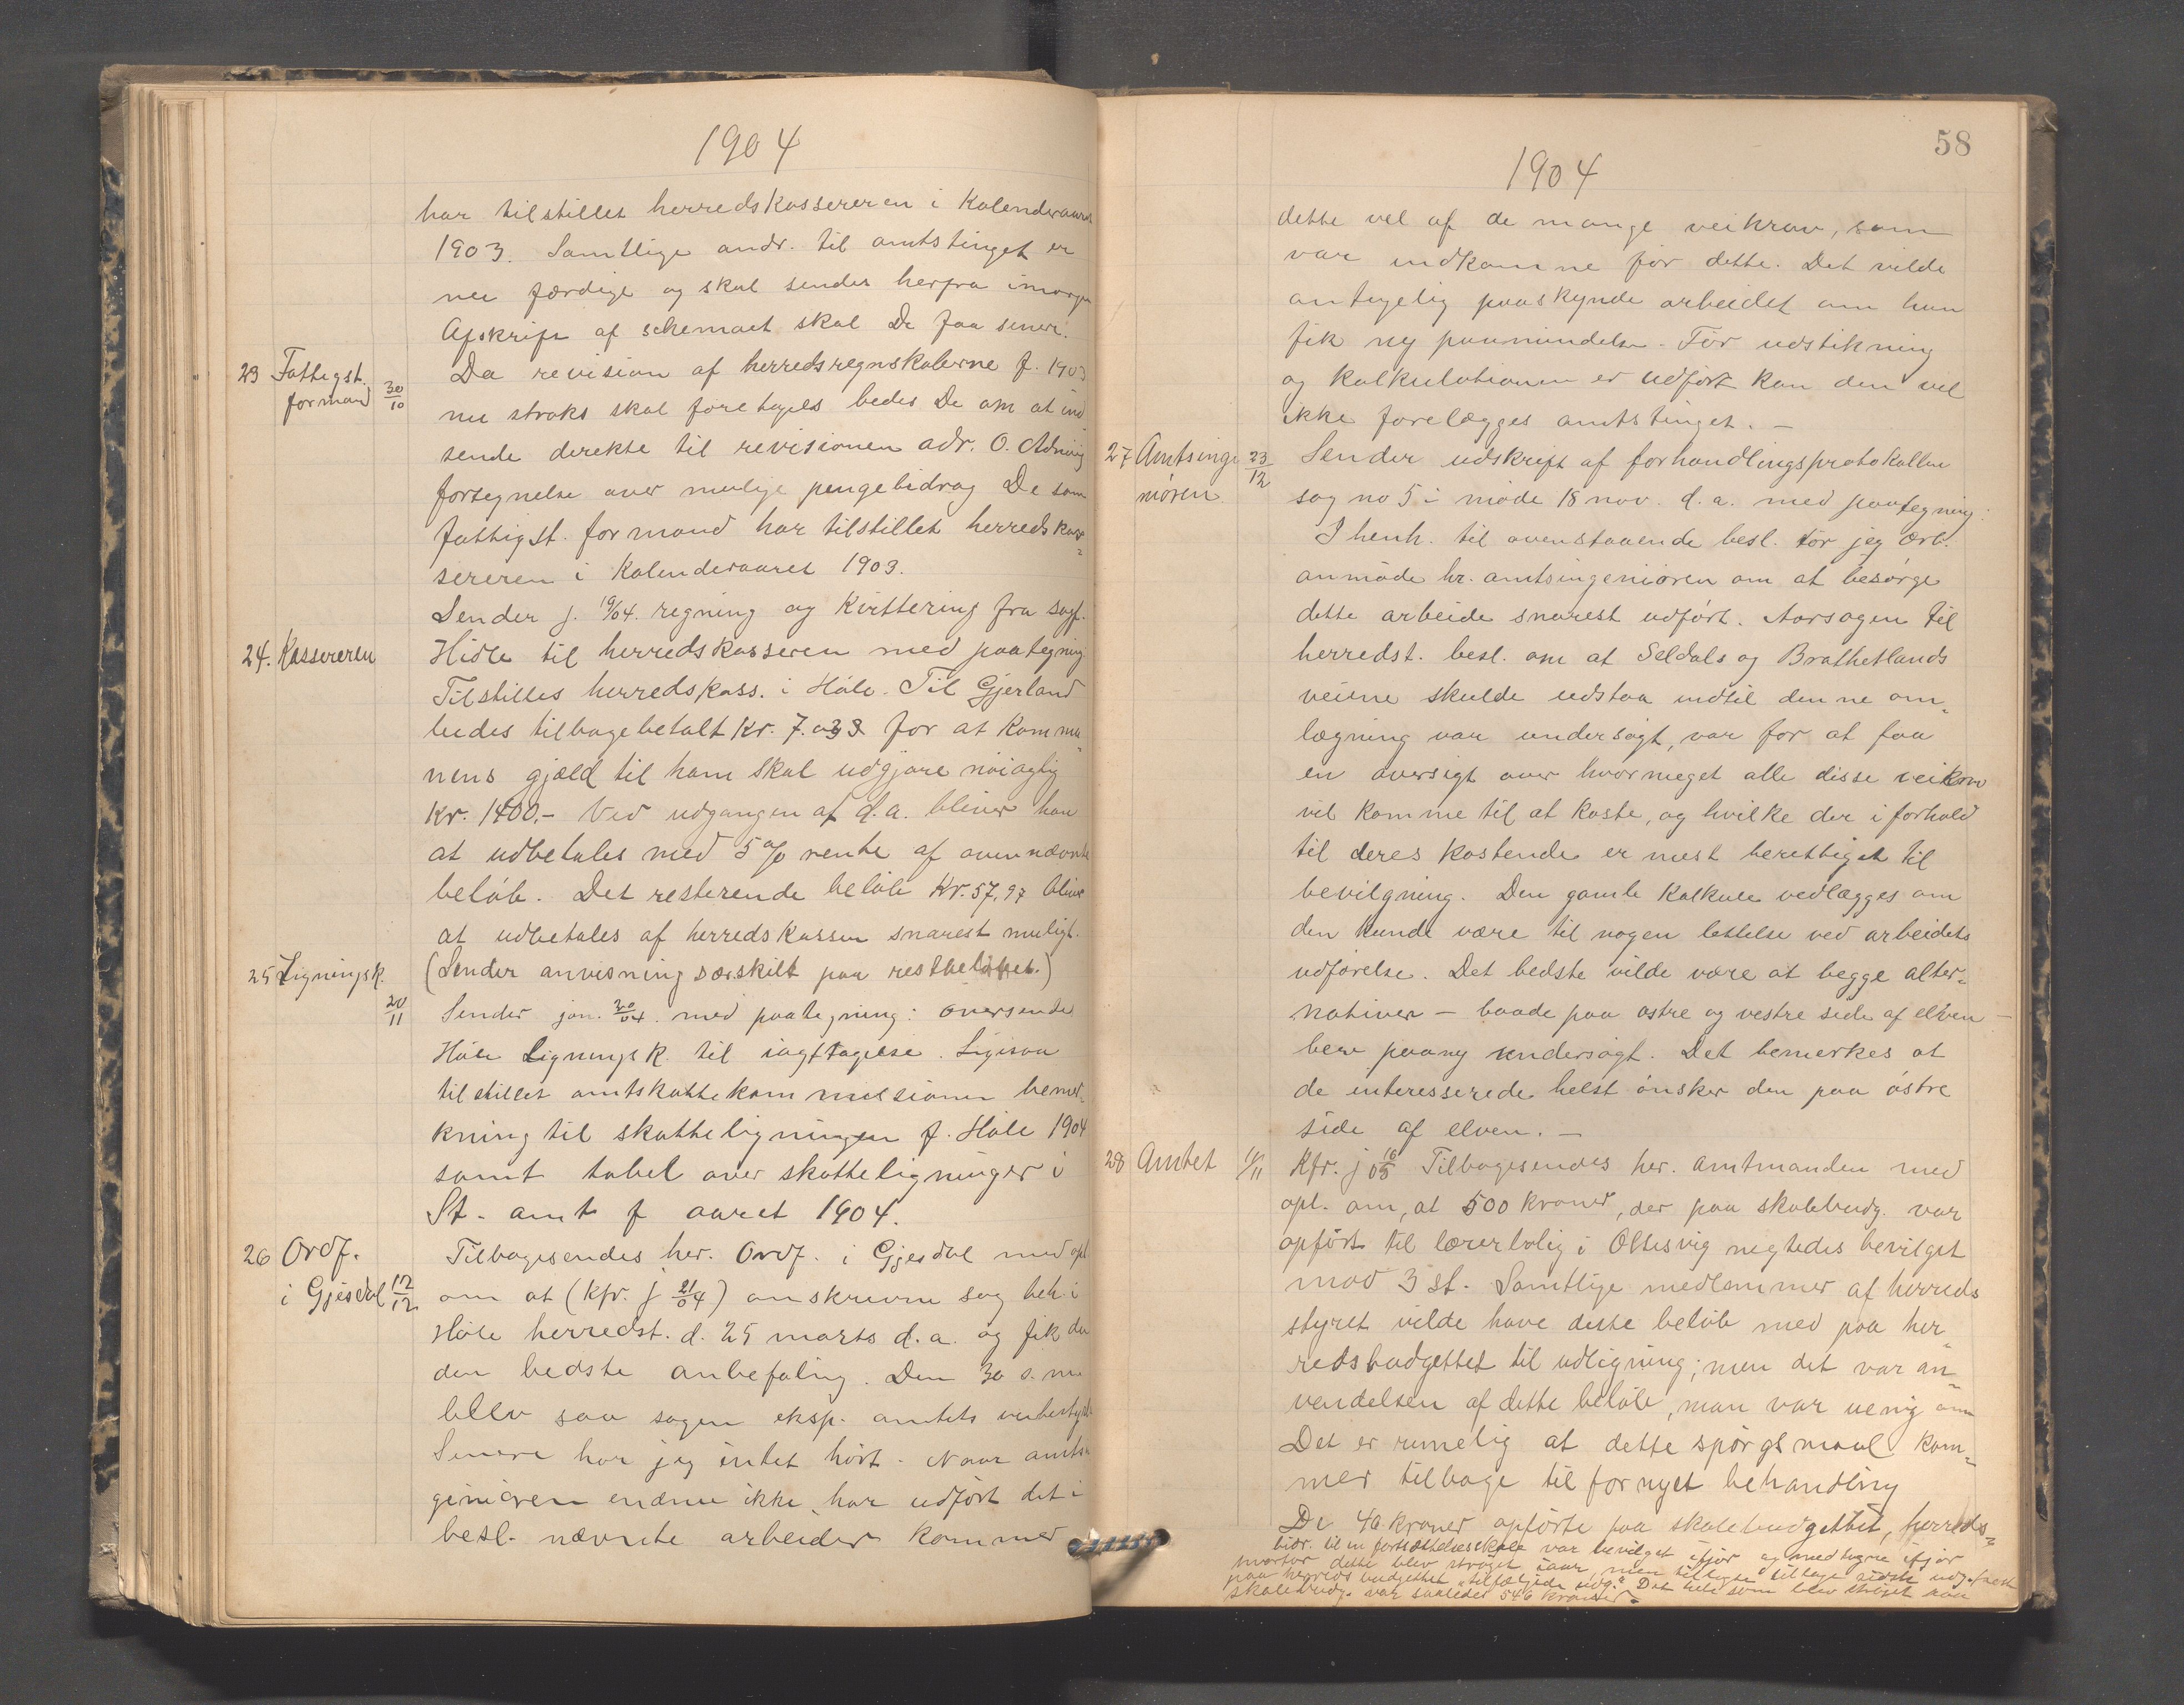 1904
har tilstillet herredskassereren i Kalenderaaret
1903. Samtlige andr. til amtstinget er
nu færdige og skal sendes herfra imorgen
Afskrift af schemaet skal De faa senere.
23 Fattigst. formand 30/10
Da revision af herredsregnskaberne f. 1903
nu straks skal foretages bedes De om at ind
sende direkte til revisionen adr. O. Adning
fortegnelse over mulige pengebidrag De som
fattigst. formand har tilstillet herredskas=
sereren i Kalenderaaret 1903.
24. Kassereren
Sender j. 19/04. regning og Kvittering fra sagf.
Hidle til herredskasseren med paategning
Tilstilles herredskass. i Høle. Til Gjerland
bedes tilbagebetalt Kr. 7.03 for at Kommu=
nens gjæld til ham skal udgjøre nøiagtig
Kr. 1400.- Ved udgangen af d.a. bliver han
at udbetales med 5% rente af ovennævnte
beløb. Det resterende beløb Kr. 57,97 bliver
at udbetales af herredskassen snarest muligt.
(Sender anvisning særskilt paa restbeløbet.)
25 Ligningsk. 20/11
Sender jon. 20/04. med paategning: Oversendes
Høle Ligningsk. til iagttagelse. Ligesaa
tilstilles amtskattekommissionen bemer=
kning til skatteligningen f. Høle 1904
samt tabel over skatteligninger i
St. amt f aaret 1904.
26 Ordf. i Gjesdal 12/12
Tilbagesendes her. Ordf. i Gjesdal med opl
om at (Kfr. j 21/04) omskrevne sag beh. i
Høle herredst. d. 25 marts d.a. og fik da
den bedste anbefaling. Den 30 s.m.
blev saa sagen eksp. amtets veibestyr
Senere har jeg intet hørt. Naar amtsin
geniøren endnu ikke har udført det i
besl. nævnte arbeider kommer
58
1904
dette vel af de mange veikrav, som
var indkomne før dette. Det vilde
antagelig paaskynde arbeidet om han
fik ny paamindelse. Før udstikning
og kalkulationen er udført kan den vel
ikke forelægges amtstinget. —
27 Amtsinge niøren 23/12
Sender udskrift af forhandlingsprotokollen
sag no 5 i møde 18 nov. d.a. med paategning:
I henh. til ovenstaaende besl. tør jeg ærb.
anmode hr. amtsingeniøren om at besørge
dette arbeide snarest udført. Aarsagen til
herredst. besl. om at Seldals og Brathetlands
veiene skulde udstaa indtil denne om=
lægning var undersøgt, var for at faa
en oversigt over hvormeget alle disse veikrav
vil komme til at koste, og hvilke der i forhold
til deres kostende er mest berettiget til
bevilgning. Den gamle Kalkule vedlægges om
den kunde være til nogen lettelse ved arbeidets
udførelse. Det bedste vilde være at begge alter=
nativer — baade paa østre og vestre side af elven —
blev paany undersøgt. Det bemerkes at
de interesserede helst ønsker den paa østre
side af elven. —
28 Amtet 11/11
Kfr. j 16/05 Tilbagesendes her. amtmanden med
opl. om, at 500 kroner, der paa skolebudg. var
opført til lærerbolig i Oltesvig negtedes bevilget
mod 3 st. Samtlige medlemmer af herreds
styret vilde have dette beløb med paa her=
redsbudgettet til udligning; men det var an=
vendelsen af dette beløb, man var uenig om
Det er rimelig at dette spørgsmaal kom=
mer tilbage til fornyet behandling
De 40 kroner opførte paa skolebudgettet, herreds=
bidr. til en fortsættelsesskole var bevilget ifjor og medtagne ifjor
hvorfor dette blev strøget iaar, men tillige tillagt sidste udg. post
paa herredsbudgettet „tilfældige udg." Det hele som blev strøget paa
skolebudg. var saaledes 546 kroner.